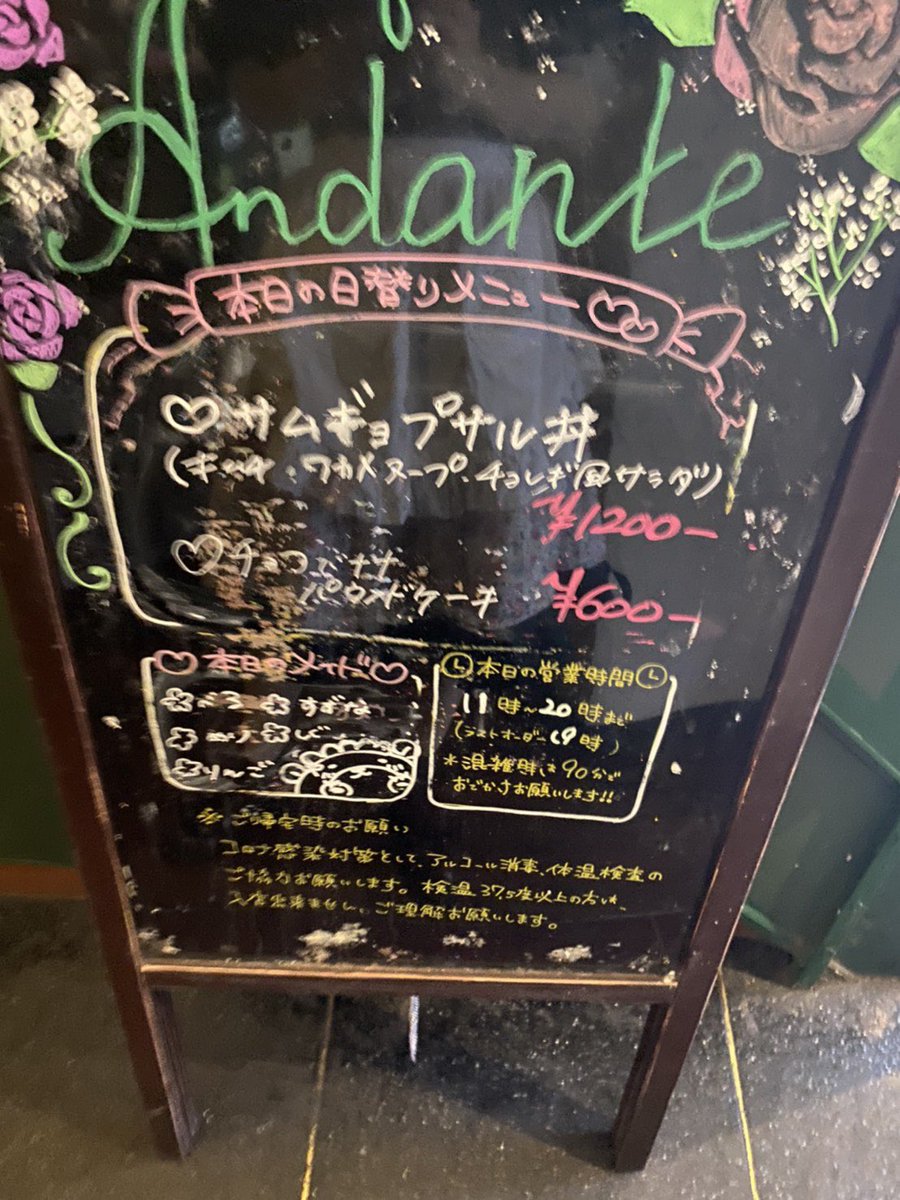 Andante
本日の日替りメニュー
サムギョプサル丼
(キムチ・ワカメスープ・チョレギ風サラダ)
¥1200-
チョコバナナ
パウンドケーキ ¥600-
本日のメイド
すずな
りんご
本日の営業時間
11時~20時まで
(ラストオーダー19時)
*混雑時は90分で
おでかけお願いします!!
ご帰宅時のお願い
コロナ感染対策として、アルコール消毒、体温検査の
ご協力お願いします。検温37.5度以上の方は、
入店出来ません。ご理解お願いします。